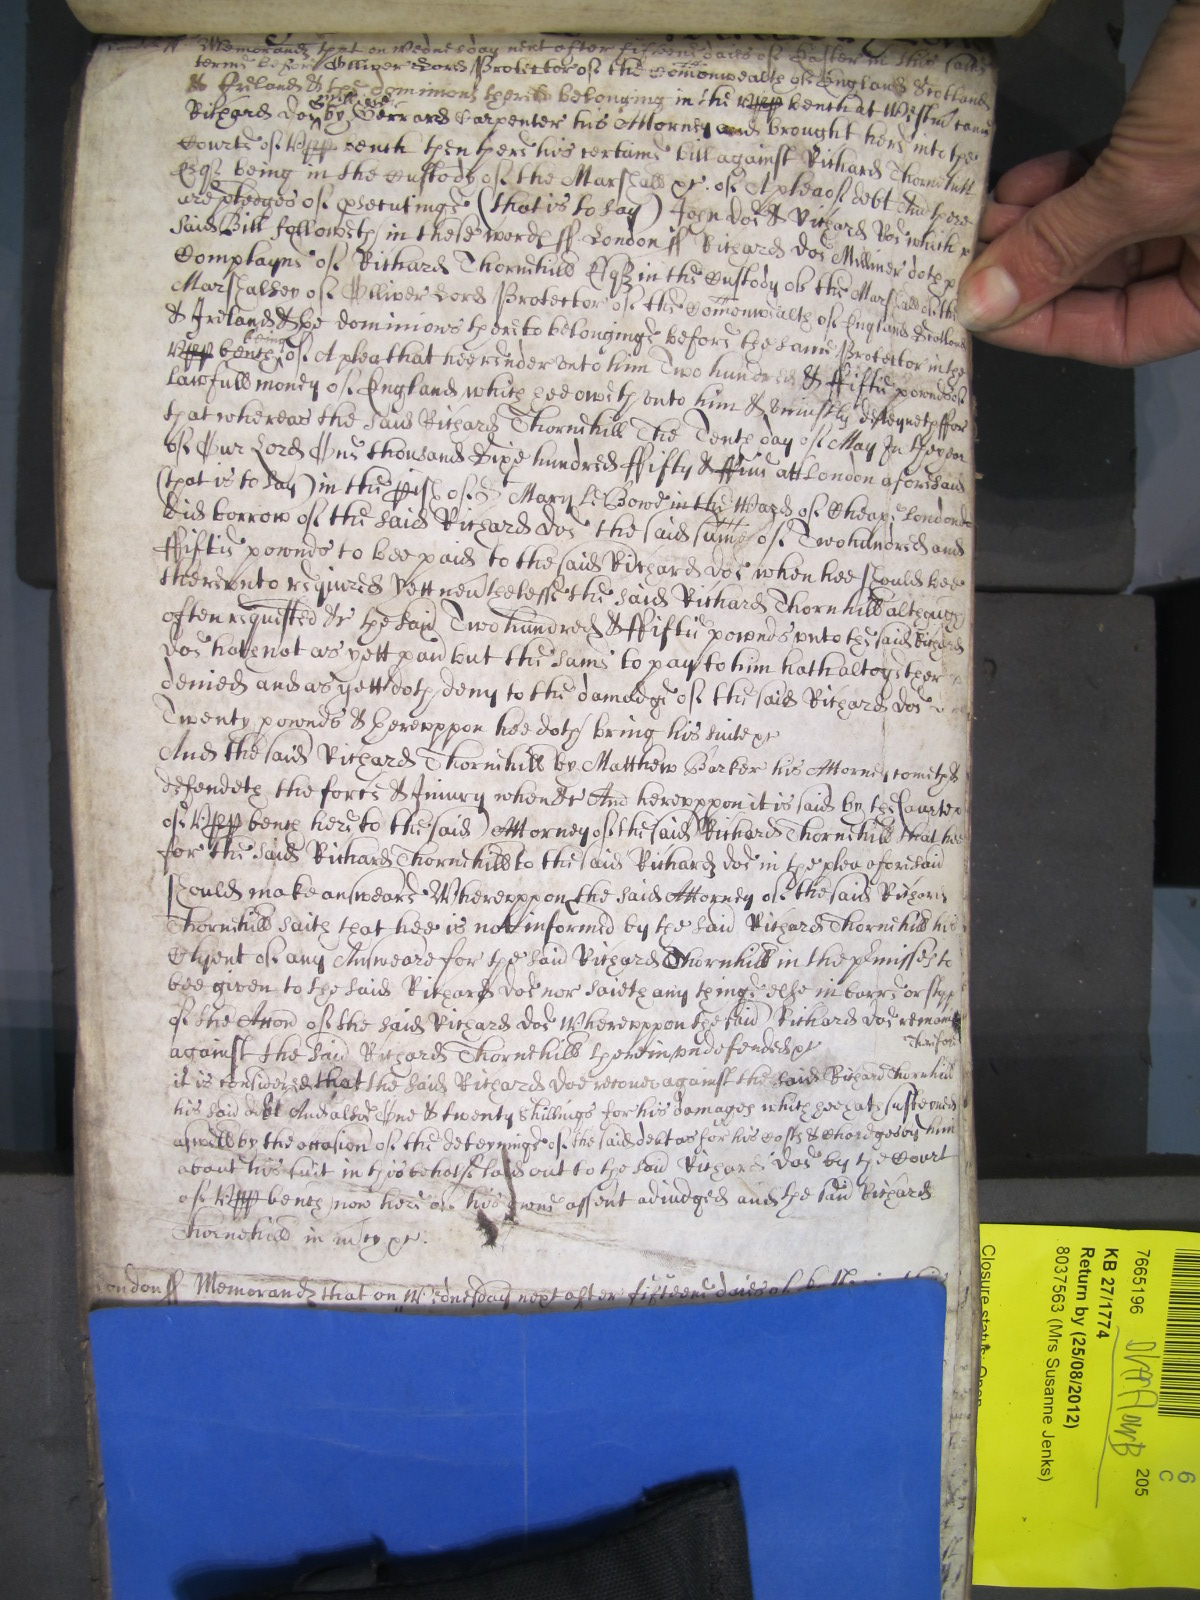 London ss Memorand that on Wednesday next after fifteene daies of Easter in this same
terme before Olliver Lord Protector of the Comonwealth of England Scotland
& Ireland & the dominions thereto belonging in the upp bench at Westm came
Richard Doe by Gerrard Carpenter his Attorney and brought here into the
Courte of upp bench then there his certaine bill against Richard Thornehill
Esqr being in the Custody of the Marshall &c. of A plea of debt And there
are pledges of psecutinge (that is to say) John Doe & Richard Roe which
said Bill followeth in these words ss London ss Richard Doe Milliner doth
Complayne of Richard Thornehill Esqr in the Custody of the Marshall of the
Marshalsey of Olliver Lord Protector of the Comonwealth of England Scotland
& Ireland & the dominions thereto belonginge before the same Protector in the
upp bench being of A plea that hee render unto him Two hundred & ffiftie pownds of
lawfull money of England which hee oweth unto him & uniustly deteyneth ffor
that whereas the said Richard Thornehill The Tenth day of May In the yeare
of Our Lord One thousand Sixe hundred ffifty & ffive att London aforesaid
(that is to say) in the pish of St Mary le Bowe in the Ward of Cheape London
did borrow of the said Richard Doe the said sume of Two hundred and
ffiftie pownds to bee paid to the said Richard Doe when hee should bee
thereunto required Yett neverthelesse the said Richard Thornehill although
often requested &c the said Two hundred & ffiftie pownds unto the said Richard
Doe hath not as yett paid but the same to pay to him hath altogether
denied and as yett doth deny to the damadge of the said Richard Doe
Twenty pownds & thereuppon hee doth bring his suite &c
And the said Richard Thornehill by Matthew Barker his Attorney cometh &
defendeth the force & Iniury when &c And hereuppon it is said by the Courte
of upp bench here to the said Attorney of the said Richard Thornehill that hee
for the said Richard Thornehill to the said Richard Doe in the plea aforesaid
should make answeare Whereuppon the said Attorney of the said Richard
Thornehill saith that hee is not informed by the said Richard Thornehill his
Clyent of any Answeare for the said Richard Thornehill in the pmisses to
bee given to the said Richard Doe nor saieth any thinge else in barre or
of the Accon of the said Richard Doe Whereuppon the said Richard Doe
against the said Richard Thornehill therein undefended &c Therefore
it is considered that the said Richard Doe recover against the said Richard Thornehill
his said debt And alsoe One & twenty shillings for his damages which hee hath susteyned
aswell by the occasion of the deteyninge of the said debt as for his costs & chardges by him
about his suit in this behalfe laid out to the said Richard Doe by the Court
of upp bench now here of his owne assent adiudged and the said Richard
Thornehill in mcy &c.
London ss Memorand that on Wednesday next after fifteene daies of
7665196
KB 27/1774
Return by (25/08/2012)
8037563 (Mrs Susanne Jenks)
Closure status: Open
205
6
C